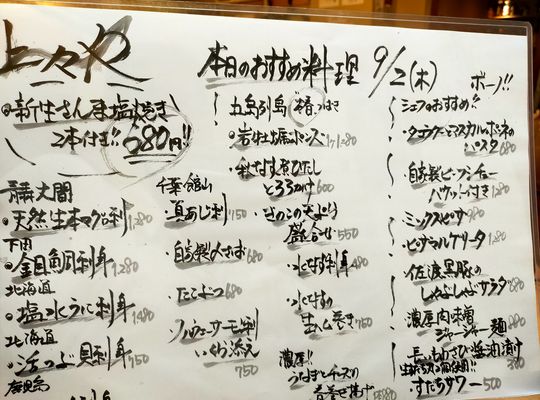 上々や
本日のおすすめ料理 9/2(木)
◎新生さんま塩焼き
2本付き!! 680円!!
青森大間
◎天然生本マグロ刺 1,280
下関
◎金目鯛刺身 1,280
北海道
◎塩水うに刺身 1,480
北海道
◎活つぶ貝刺身 750
鹿児島
千葉館山
・真あじ刺 750
・自家製〆さば 680
・たこぶつ 680
・ノルウェーサーモン刺
いくら添え
750
五島列島
・岩牡蠣ポン酢 1,280
・秋なす煮びたし
とろろがけ 600
・きのこの天ぷら
盛合せ 550
・水なす刺身 480
・水なすの
生ハム巻き 750
濃厚!!
うなぎとチーズの
春巻き揚げ 880
ボーノ!!
シェフのおすすめ!!
マスカルポーネの
パスタ 680
・自家製ビーフシチュー
バケット付き 1,280
・ミックスピザ 980
・ピザマルゲリータ 1,180
・佐渡黒豚の
しゃぶしゃぶサラダ 880
・濃厚肉味噌
ジャージャー麺 880
・長いもわさび醤油漬け 380
すだちサワー 500